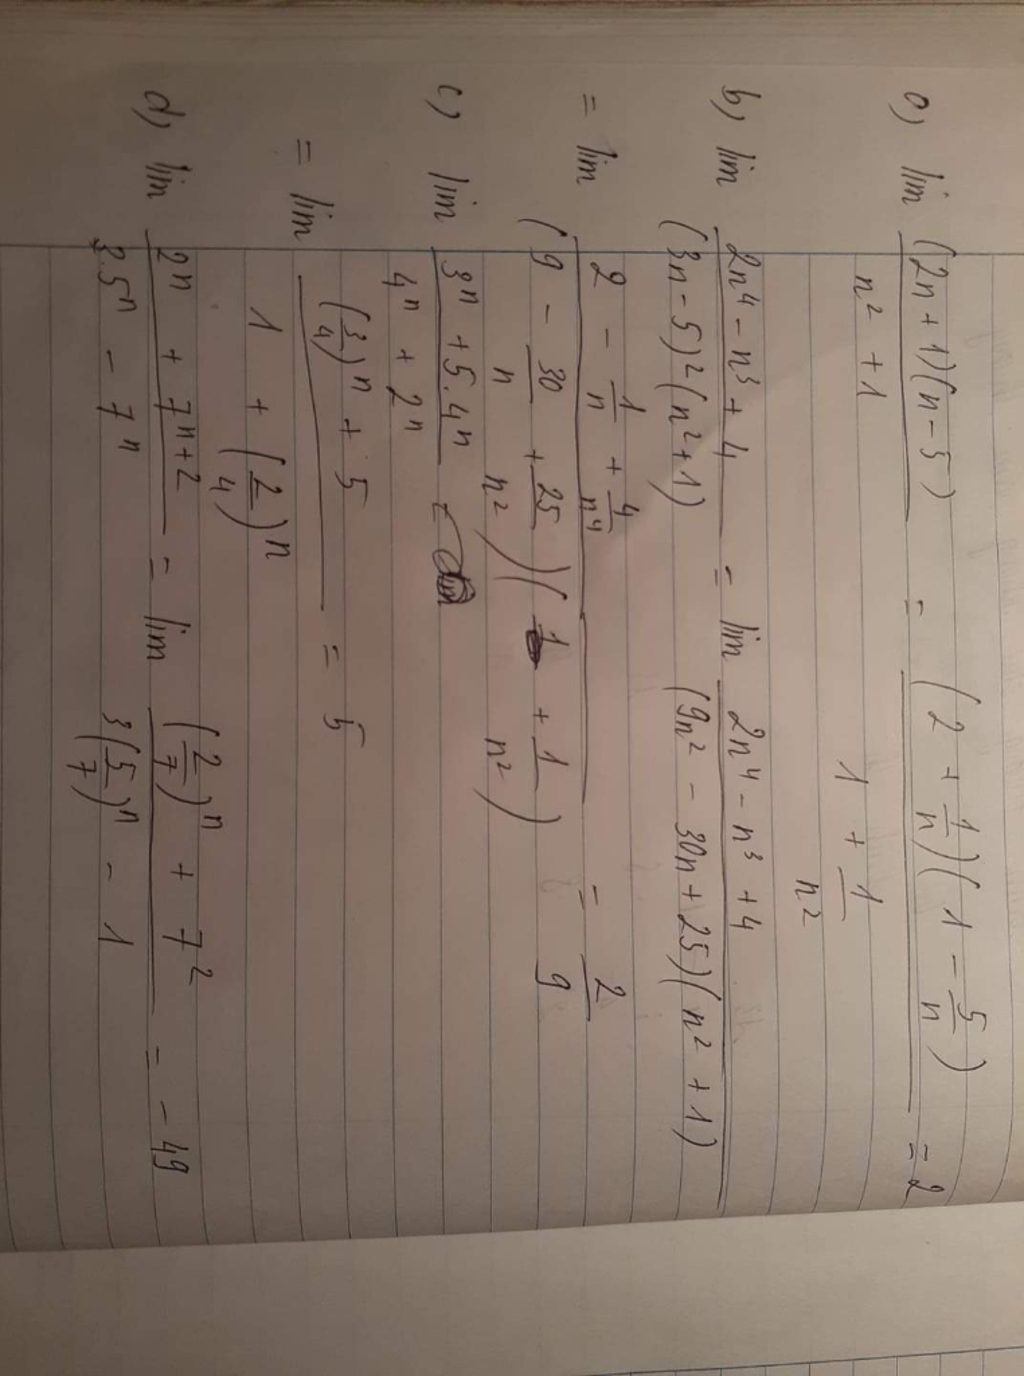 a) lim (2n+1)(n-5) / n² + 1 = (2 + 1/n)(1 - 5/n) / 1 + 1/n² = 2
b) lim 2n⁴ - n³ + 4 / (3n - 5)²(n²+1) = lim 2n⁴ - n³ + 4 / (9n² - 30n + 25)(n² + 1)
= lim 2 - 1/n + 4/n⁴ / (9 - 30/n + 25/n²)(1 + 1/n²) = 2/9
c) lim 3ⁿ + 5.4ⁿ / 4ⁿ + 2ⁿ =
= lim (3/4)ⁿ + 5 / 1 + (2/4)ⁿ = 5
d) lim 2ⁿ + 7ⁿ⁺² / 3.5ⁿ - 7ⁿ = lim (2/7)ⁿ + 7² / 3(5/7)ⁿ - 1 = - 49